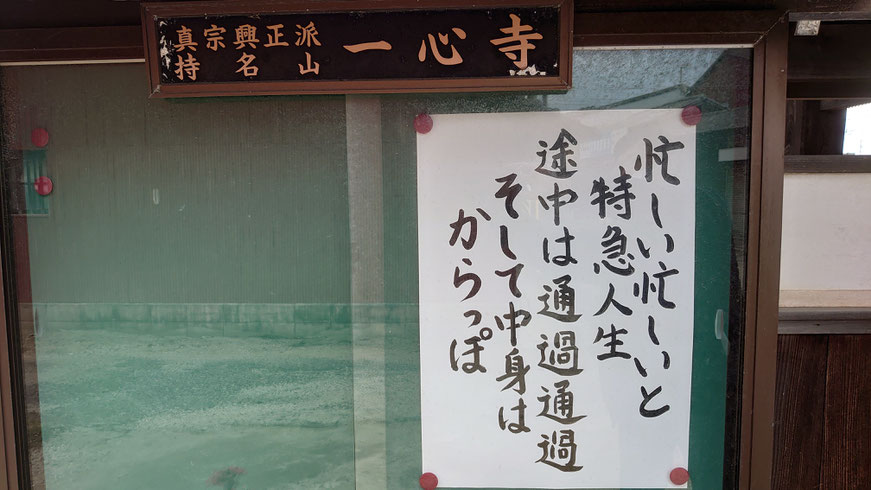 真宗興正派
持名山
一心寺
忙しい忙しいと
特急人生
途中は通過通過
そして中身は
からっぽ